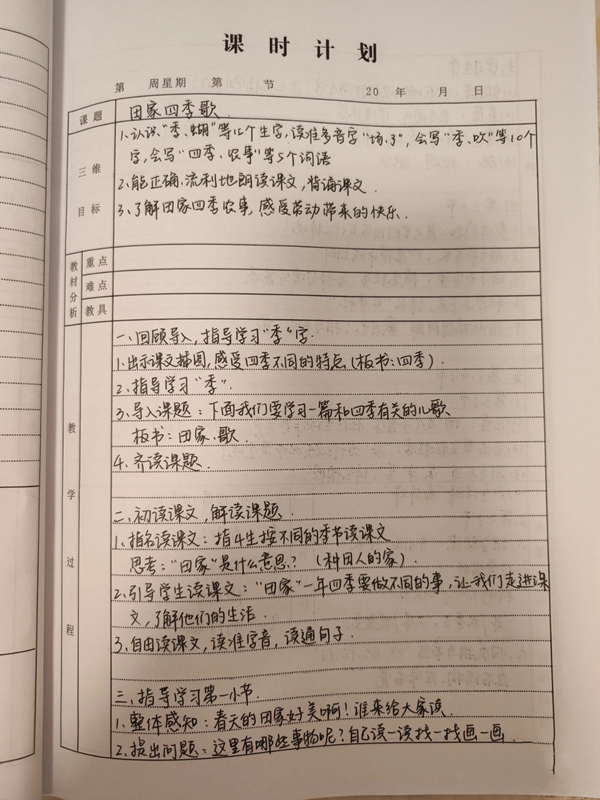 课时计划
第 周星期 第 节 20 年 月 日
课题 田家四季歌
三维目标
1.认识“季、蝴”等15个生字,读准多音字“场、了”,会写“季、吹”等10个
字,会写“四季、农事”等5个词语
2.能正确.流利地朗读课文,背诵课文.
3.了解田家四季农事,感受劳动带来的快乐.
教材分析
重点
难点
教具
教学过程
一、回顾导入,指导学习“季”字.
1.出示课文插图,感受四季不同的特点(板书:四季).
2.指导学习“季”.
3.导入课题:下面我们要学习一篇和四季有关的儿歌
板书:田家、歌.
4.齐读课题.
二、初读课文,解读课题.
1.指名读课文:指4生按不同的季节读课文
思考:“田家”是什么意思?(种田人的家).
2.引导学生读课文:“田家”一年四季要做不同的事,让我们走进课
文,了解他们的生活.
3.自由读课文,读准字音,读通句子.
三、指导学习第一小节.
1.整体感知:春天的田家好美啊!谁来给大家读.
2.提出问题:这里有哪些事物呢?自己读一读找一找画一画.